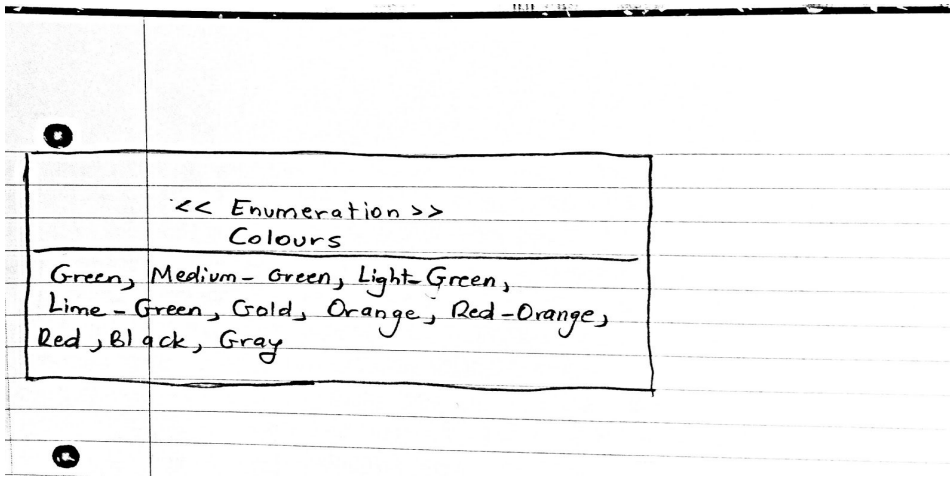 << Enumeration >>
Colours
Green, Medium-Green, Light-Green,
Lime-Green, Gold, Orange, Red-Orange,
Red, Black, Gray